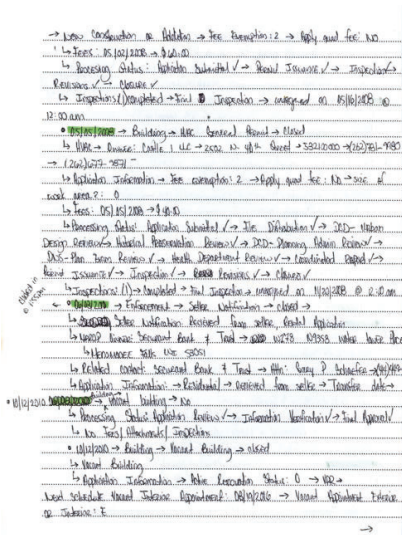 → New Construction or Addition → Fee Exemption: 2 → Apply quad fee: NO
↳ Fees: 05/02/2008 → $60.00
↳ Processing Status: Application Submitted ✓ → Permit Issuance ✓ → Inspection ✓ →
Revisions ✓ → Closure ✓
↳ Inspections (1) completed → Final Inspection → assigned on 05/16/2008 @
12:00 am
• 05/05/2008 → Building → HVAC General Permit → Closed
↳ HVAC → Owner: Castle 1 LLC → 2502 N. 48th Street →
→ (262) 677-9871
↳ Application Information → Fee exemption: 2 → Apply quad fee: NO → size of
work area?: 0
↳ Fees: 05/05/2008 → $40.00
↳ Processing Status: Application Submitted ✓ → Files Distribution ✓ → DCD - Urban
Design Review ✓ → Historical Preservation Review ✓ → DCD - Planning Admin Review ✓ →
DNS - Plan Exam Review ✓ → Health Department Review ✓ → Coordinated Report ✓ →
Permit Issuance ✓ → Inspection ✓ → Revisions ✓ → Closure ✓
↳ Inspections (1) → completed → Final Inspection → assigned on 11/20/2008 @ 12:00 am
→ Enforcement → Seller Notification → closed →
↳ Seller Notification Received from seller, Rental Application
↳ Owner: Securant Bank & Trust → W278 N9358
↳ Menomonee Falls, WI 53051
↳ Related contact: Securant Bank & Trust → Attn: Barry P
↳ Application Information: → Residential → Received from seller → Transfer date →
• 10/12/2010 Vacant building → NO
↳ Processing Status: Application Review ✓ → Information Verification ✓ → Final Approval ✓
↳ No Fees / Attachments / Inspection
• 10/12/2010 → Building → Vacant Building → closed
↳ Vacant Building
↳ Application Information → Active Renovation Status: 0 → VBR →
Need Schedule Vacant Interior Appointment: 08/19/2016 → Vacant Appointment Exterior
or Interior: E
→